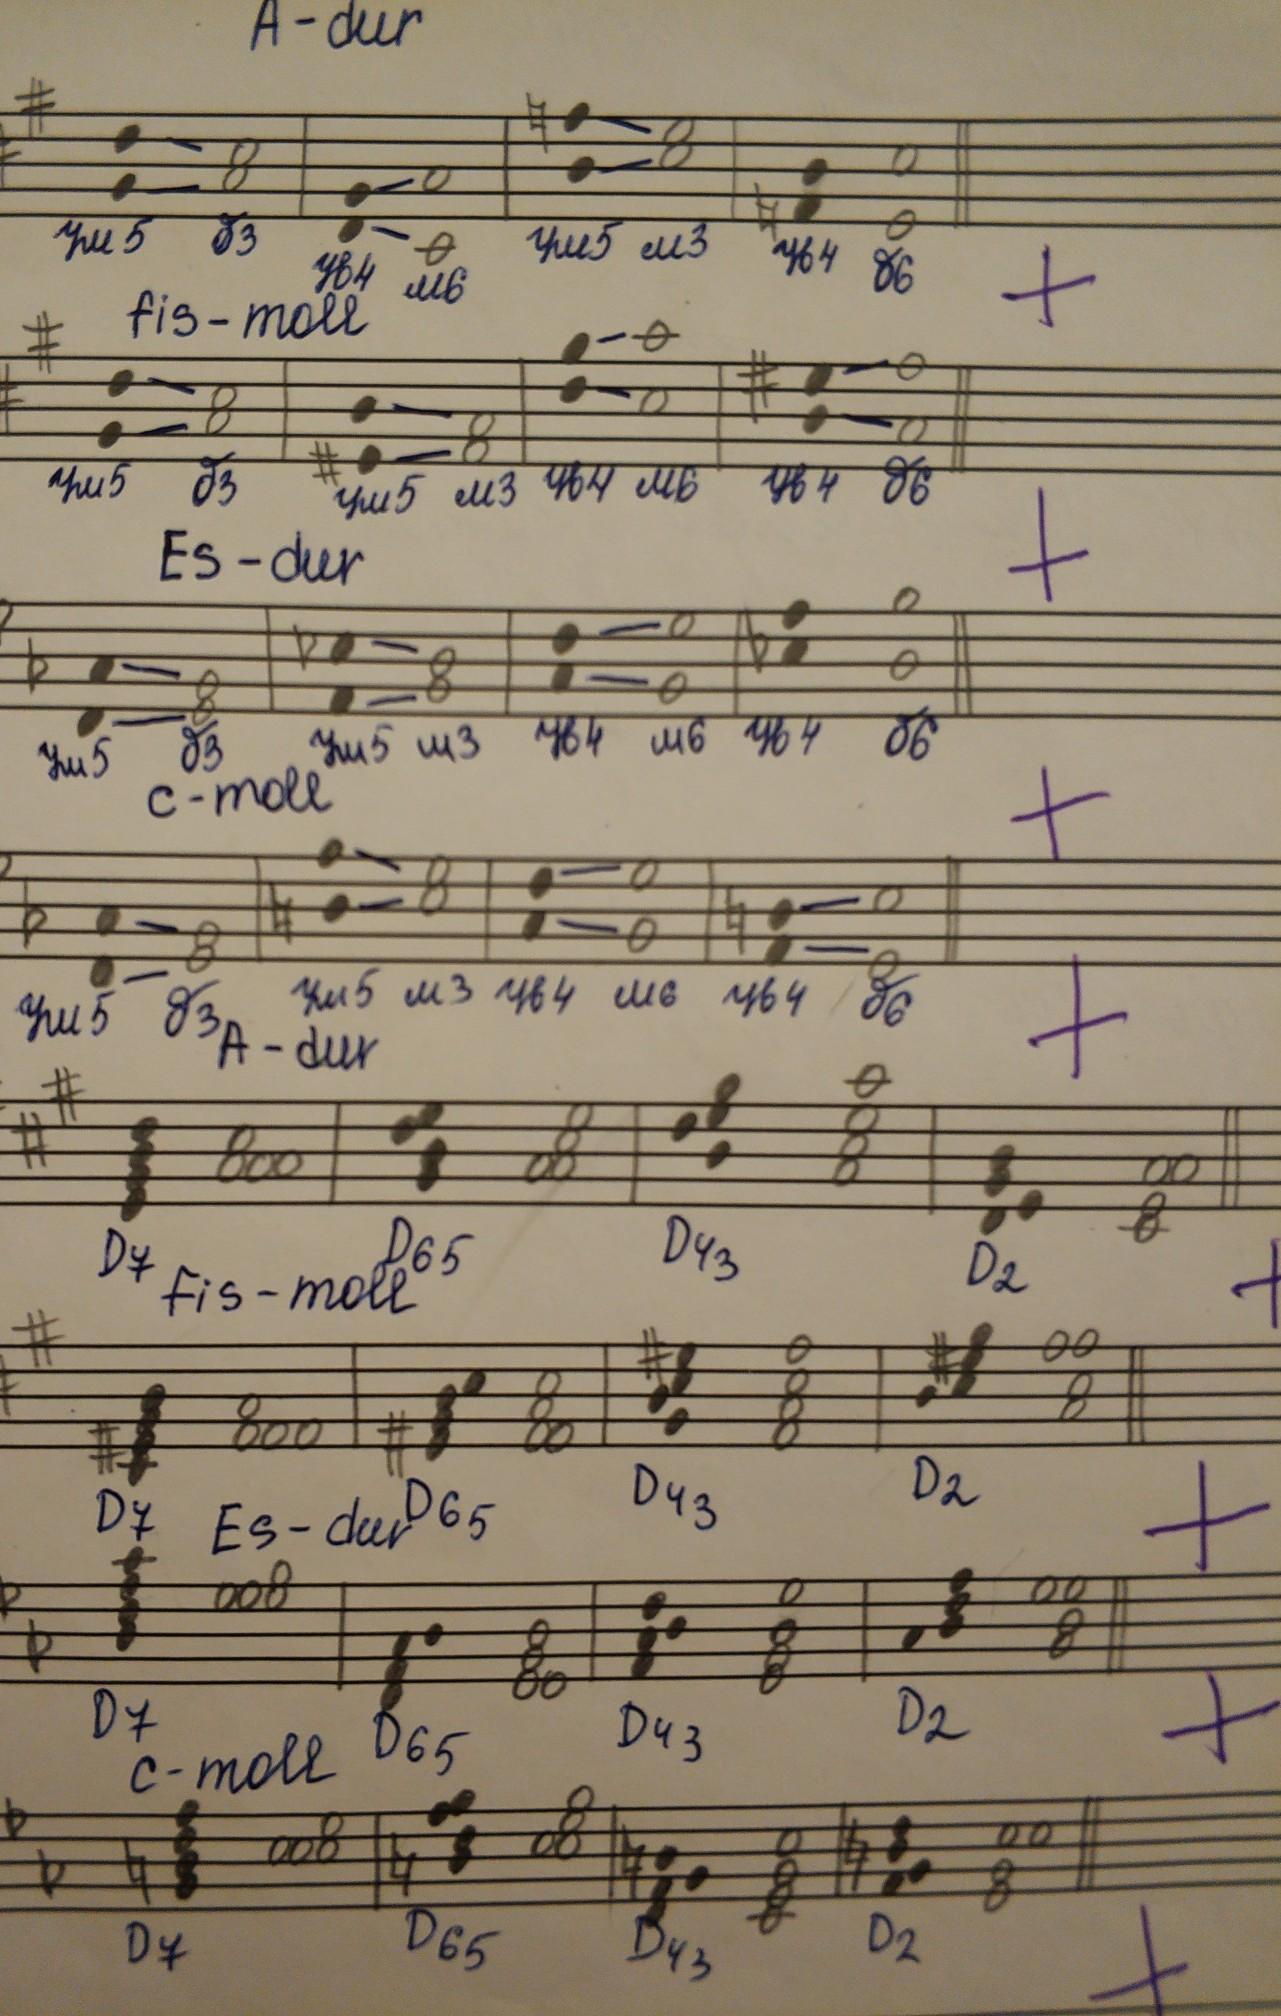 A-dur
ум5 б3 ув4 м6 ум5 м3 ув4 б6
fis-moll
ум5 б3 ум5 м3 ув4 м6 ув4 б6
Es-dur
ум5 б3 ум5 м3 ув4 м6 ув4 б6
c-moll
ум5 б3 ум5 м3 ув4 м6 ув4 б6
A-dur
D7 D65 D43 D2
fis-moll
D7 D65 D43 D2
Es-dur
D7 D65 D43 D2
c-moll
D7 D65 D43 D2